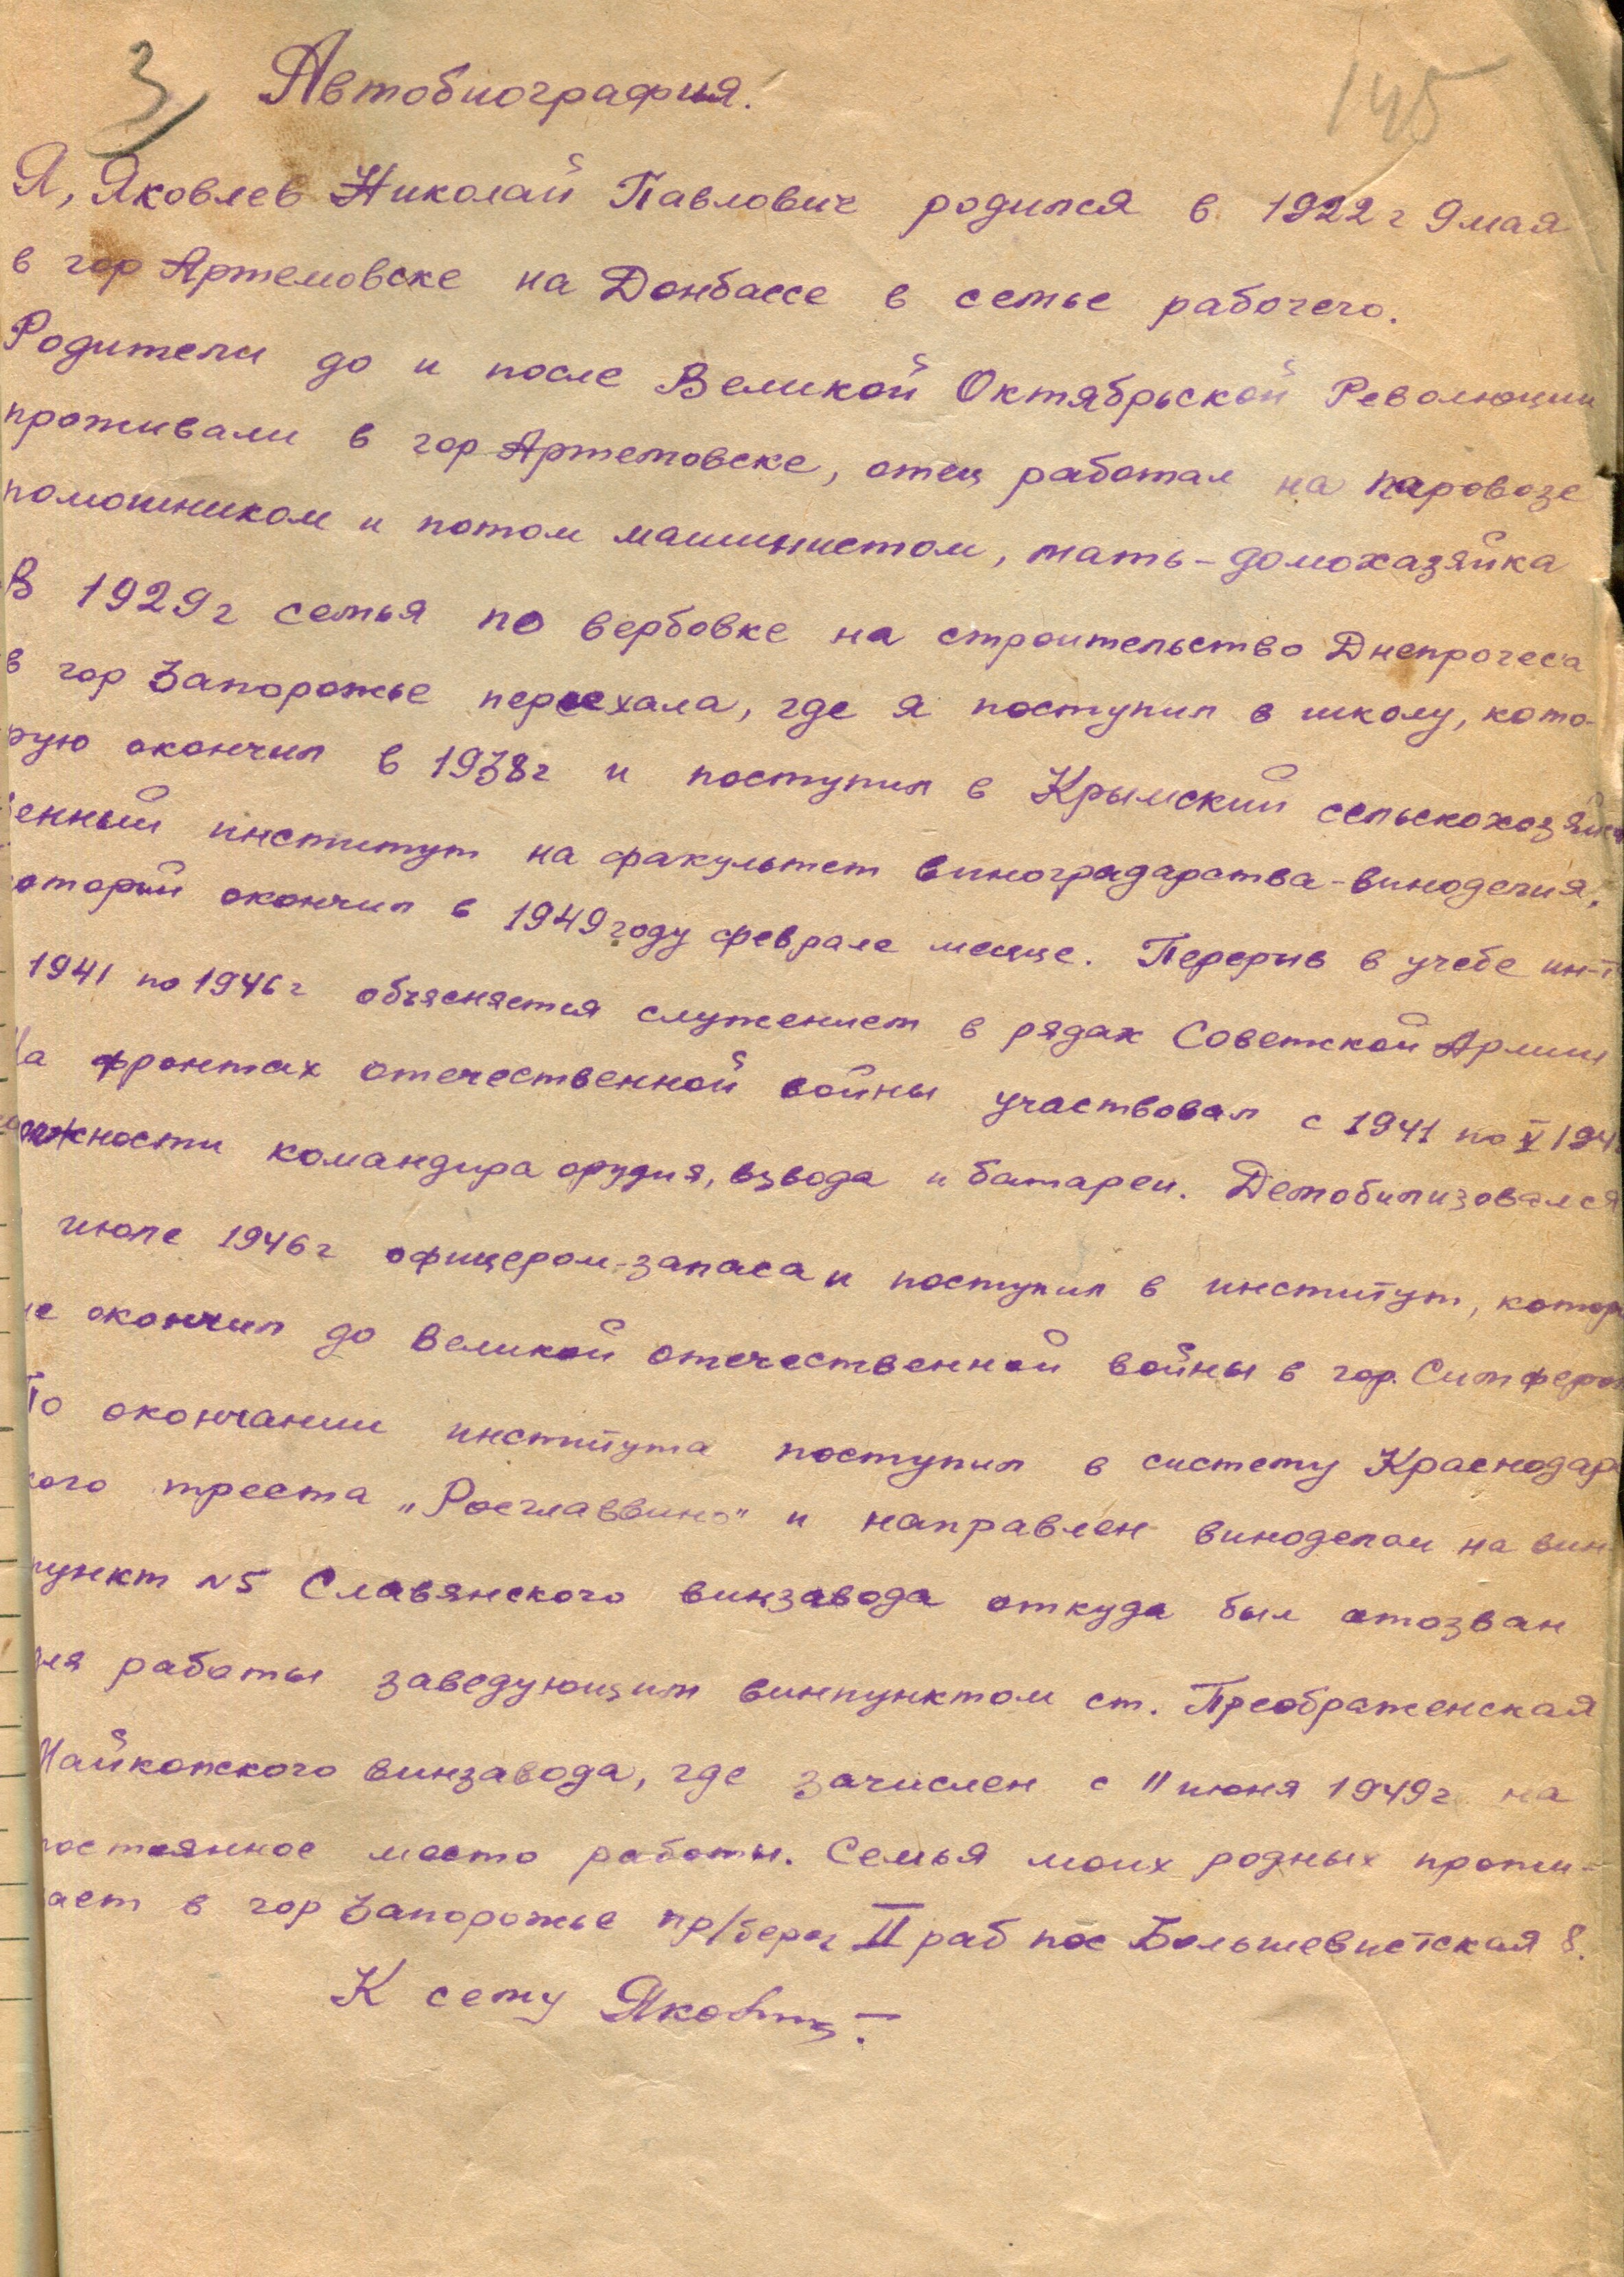 3
145
Автобиография.
Я, Яковлев Николай Павлович родился в 1922 г 9 мая
в гор Артемовске на Донбассе в семье рабочего.
Родители до и после Великой Октябрьской Революции
проживали в гор Артемовске, отец работал на паровозе
помошником и потом машинистом, мать - домохазяйка
В 1929 г семья по вербовке на строительство Днепрогеса
в гор Запорожье переехала, где я поступил в школу, кото-
рую окончил в 1938 г и поступил в Крымский сельскохозяйс
венный институт на факультет виноградарства-виноделия,
оторый окончил в 1949 году феврале месяце. Перерыв в учебе ин-т
1941 по 1946 г объясняется служением в рядах Советской Армии
На фронтах отечественной войны участвовал с 1941 по V 194
должности командира орудия, взвода и батареи. Демобилизовался
июле 1946 г офицером-запаса и поступил в институт, котор
не окончил до Великой отечественной войны в гор. Симферо
По окончании института поступил в систему Краснодар
кого треста „Росглаввино" и направлен виноделом на вин
пункт N5 Славянского винзавода откуда был отозван
для работы заведующим винпунктом ст. Преображенская
Майкопского винзавода, где зачислен с 11 июня 1949 г на
постоянное место работы. Семья моих родных прожи-
вает в гор Запорожье пр/берег II раб пос Большевистская 8.
К сему